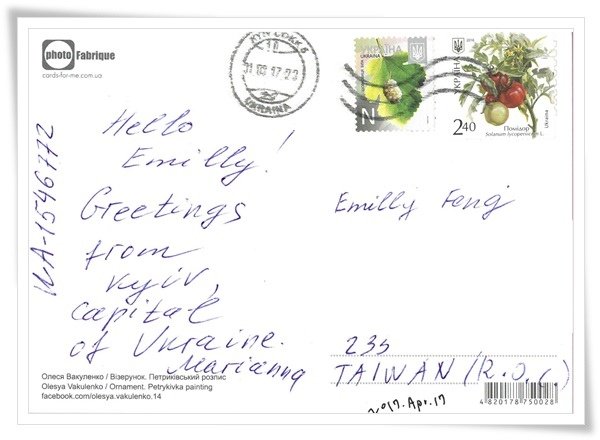 photo Fabrique
cards-for-me.com.ua
31 03 17 22
UKRAINA
УКРАЇНА
UKRAINE
N
УКРАЇНА
2 40
Помідор
Solanum lycopersicum L.
UA-1546772
Hello
Emilly!
Greetings
from
Kyiv,
capital
of Ukraine.
Marianna
Emilly Feng
235
TAIWAN (R.O.C.)
2017.Apr.17
Олеся Вакуленко / Візерунок. Петриківський розпис
Olesya Vakulenko / Ornament. Petrykivka painting
facebook.com/olesya.vakulenko.14
4 820178 750028